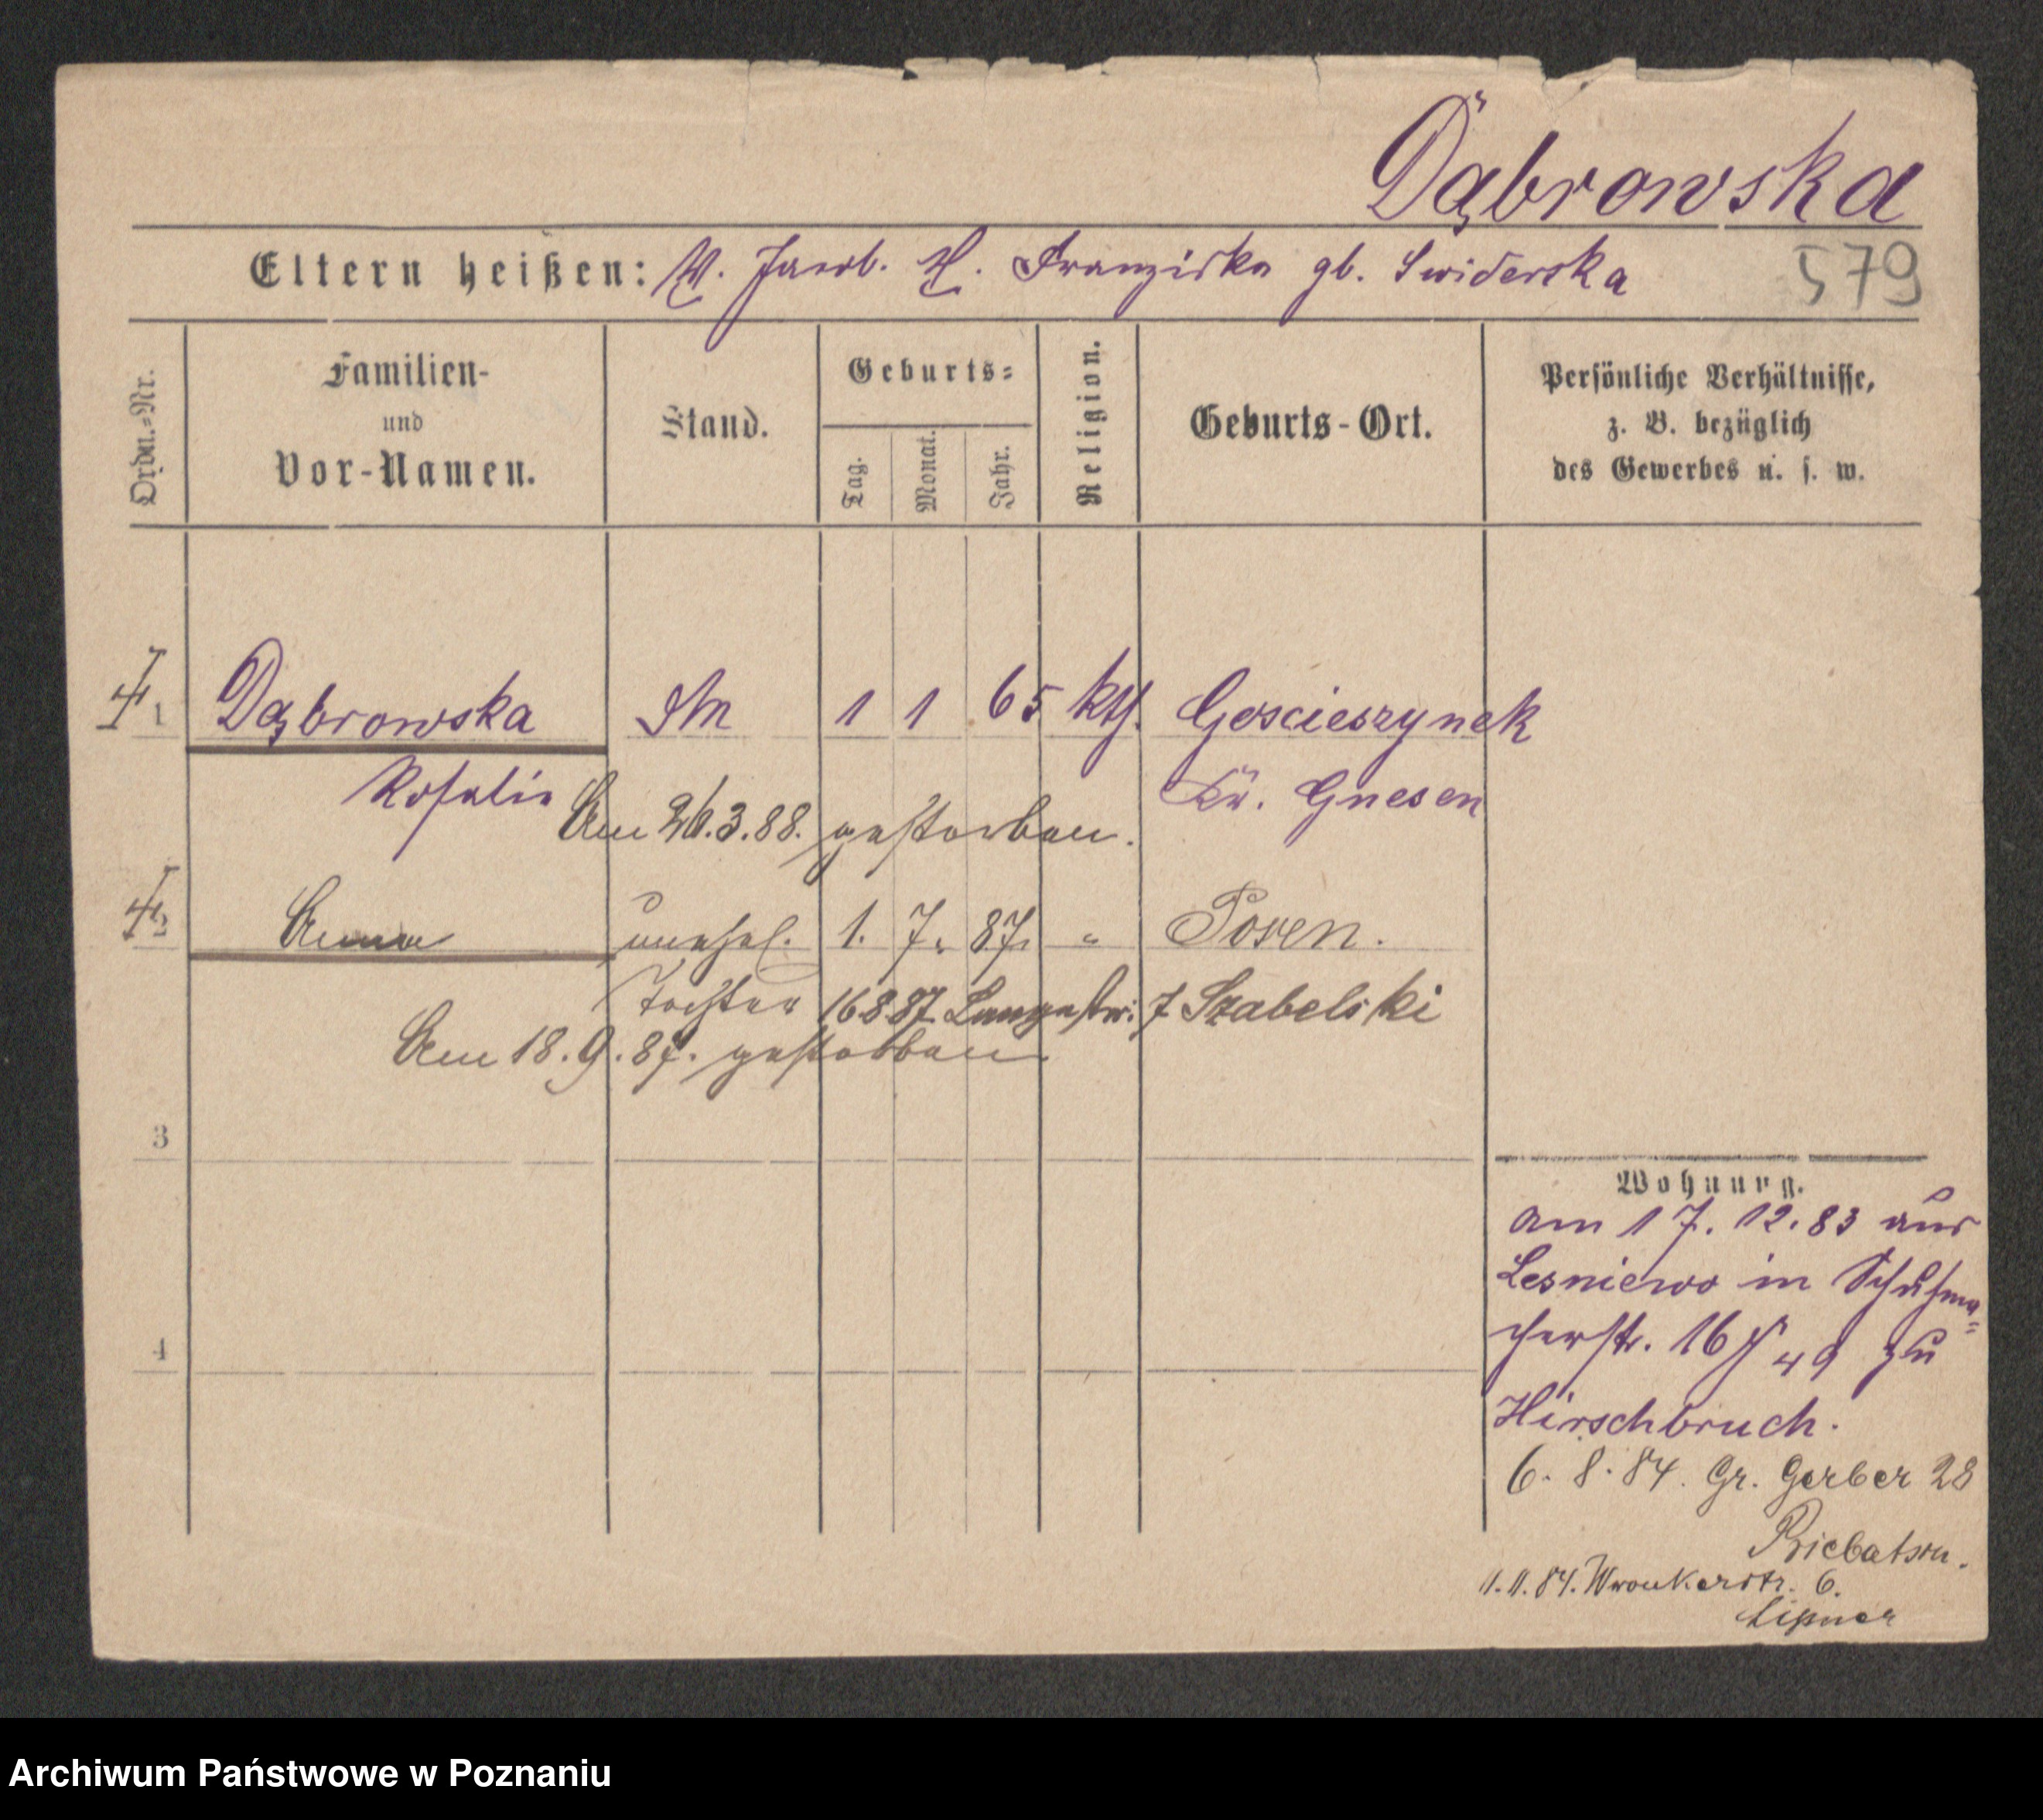 Dąbrowska
Eltern heißen: V. Jacob. M. Franziska gb. Swiderska 579
Ordn.=Nr.
Familien-
und
Vor-Namen.
Stand.
Geburts=
Tag.
Monat.
Jahr.
Religion.
Geburts-Ort.
Persönliche Verhältnisse,
z. B. bezüglich
des Gewerbes u. s. w.
1 Dąbrowska 1 1 65 kth. Goscieszynek
Rosalie Kr. Gnesen
Am 26.3.88. gestorben.
2 Anna unehel. 1. 7. 87. " Posen.
Tochter 16887 Langestr: 7 Szabelski
Am 18.9.87. gestorben
3
4
Wohnung.
am 17. 12. 83 aus
Lesniewo in Schuhma=
cherstr. 16 49 zu
Hirschbruch.
6. 8. 84. Gr. Gerber 28
1.11.84. Wronkerstr. 6.
Lipner
Archiwum Państwowe w Poznaniu